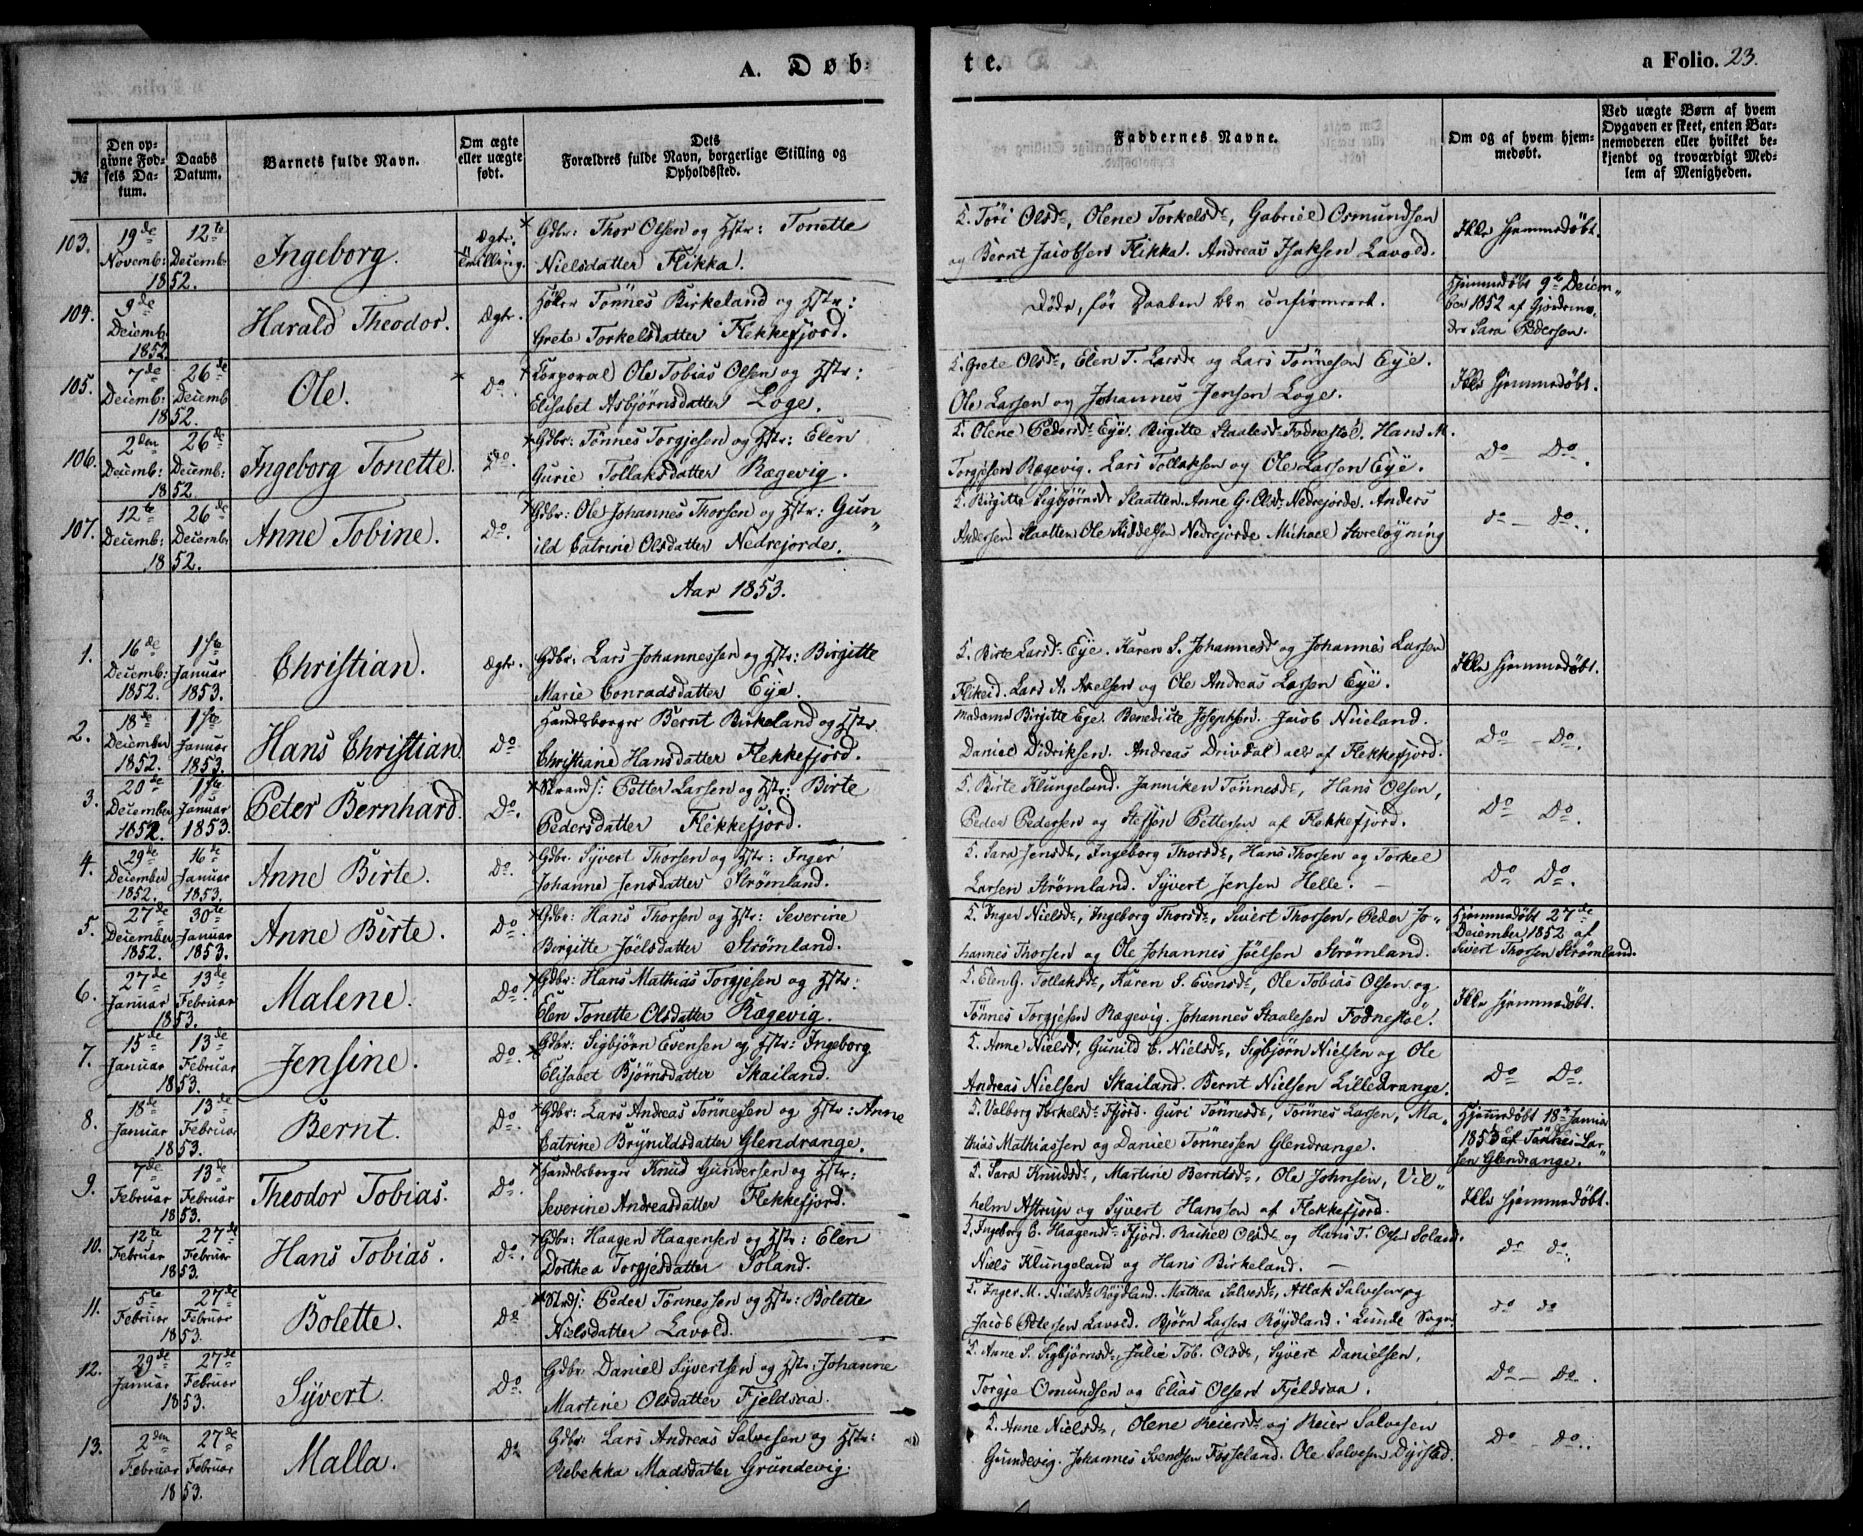 A. Døb-
te.
a Folio. 23.
№
Den opgivne Fødsels Datum.
Daabs Datum.
Barnets fulde Navn.
Om ægte eller uægte født.
Dets Forældres fulde Navn, borgerlige Stilling og Opholdssted.
Faddernes Navne.
Om og af hvem hjemmedøbt.
Ved uægte Børn af hvem Opgaven er skeet, enten Barnemoderen eller hvilket bekjendt og troværdigt Medlem af Menigheden.
103. 19de Novemb: 1852. 12te Decemb: Ingeborg. Ægte. Tvilling.
Gdbr: Thor Olsen og Hstr: Tonette
Nielsdatter Flikka.
5. Töri Olsdr, Olene Torkelsdr, Gabriel Osmundsen
og Bernt Jacobsen Flikka. Andreas Isaksen Lavold.
Ikke hjemmedøbt.
104. 9de Decemb: 1852 Harald Theodor. Ægte.
Tönnes Birkeland og Hstr:
Grete Torkelsdatter Flekkefjord.
Døde, før Daaben blev confirmeret.
Hjemmedøbt 9de Decem„
ber 1852 af Gjordemo„
der Sara Pedersen.
105. 7de Decemb: 1852. 26de Decemb: Ole. Do.
Corporal Ole Tobias Olsen og Hstr:
Elisabet Asbjørnsdatter Loge.
5. Grete Olsdr, Elen T. Larsdr og Lars Tønnesen Eye.
Ole Larsen og Johannes Jensen Loge.
Ikke hjemmedøbt.
106. 2den Decemb: 1852. 26de Decemb: Ingeborg Tonette. Do.
Gdbr: Tønnes Torgjesen og Hstr: Elen
Gurie Tollaksdatter Rægevig.
5. Olene Pedersdr Eye. Birgitte Staalesdr Fodnestøl. Hans M.
Torgjesen Rægevig. Lars Tollaksen og Ole Larsen Eye.
Do – Do.
107. 12te Decemb: 1852. 26de Decemb: Anne Tobine. Do.
Gdbr: Ole Johannes Thorsen og Hstr: Gun„
ild Catrine Olsdatter Nedrejorde.
5. Birgitte Sigbjørnsdr Slaatten. Anne G. Olsdr Nedrejorde. Anders
Andersen Slaatten Ole Nedrejorde Michael Storeløgning
do – do.
Aar 1853.
1. 16de Decemb: 1852. 1ste Januar 1853. Christian. Ægte.
Gdbr: Lars Johannessen og Hstr: Birgitte
Marie Conradsdatter Eye.
5. Birte Larsdr Eye. Karen S. Johannesdr og Johannes Larsen
Flikeid. Lars A. Axelsen og Ole Andreas Larsen Eye.
Ikke hjemmedøbt.
2. 18de December 1852. 1ste Januar 1853. Hans Christian. Do
Handelsborger Bernt Birkeland og Hstr:
Christiane Hansdatter Flekkefjord.
Madame Birgitte Eye. Benedicte Josephsen. Jacob Nueland.
Daniel Didriksen. Andreas Drivdal alle af Flekkefjord.
Do – Do.
3. 20de December 1852. 1ste Januar 1853. Peter Bernhard. Do.
Strands: Petter Larsen og Hstr: Birte
Pedersdatter Flekkefjord.
5. Birte Klungeland. Janniken Tønnesdr, Hans Olsen,
Peder Pedersen og Steffen Pettersen af Flekkefjord.
Do Do.
4. 29de December 1852. 16de Januar 1853. Anne Birte. Do.
Gdbr: Syvert Thorsen og Hstr: Inger
Johanne Jensdatter Strømland.
5. Sara Jensdr, Ingeborg Thorsdr, Hans Thorsen og Torkel
Larsen Strømland. Syvert Jensen Helle. –
Do Do.
5. 27de December 1852. 30te Januar 1853. Anne Birte. Do.
Gdbr: Hans Thorsen og Hstr: Severine
Birgitte Jöelsdatter Strømland.
5. Inger Nielsdr, Ingeborg Thorsdr, Sivert Thorsen, Peder Jo„
hannes Thorsen og Ole Johannes Jöelsen Strømland.
Hjemmedøbt 27de
December 1852 af
Sivert Thorsen Strømland.
6. 27de Januar 1853. 13de Februar Malene. Do.
Gdbr: Hans Mathias Torgjesen og Hstr:
Elen Tonette Olsdatter Rægevig.
5. Elen G. Tollaksdr, Karen S. Evensdr, Ole Tobias Olsen og
Tønnes Torgjesen Rægevig. Johannes Staalesen Fodnestøl.
Ikke hjemmedøbt.
7. 15de Januar 1853. 13de Februar Jensine. Do.
Gdbr: Sigbjørn Evensen og Hstr: Ingeborg
Elisabet Bjørnsdatter Skailand.
5. Anne Nielsdr, Gunild C. Nielsdr, Sigbjørn Nielsen og Ole
Andreas Nielsen Skailand. Bernt Nielsen Lilledrange.
Do Do.
8. 18de Januar 1853. 13de Februar Bernt. Do.
Gdbr: Lars Andreas Tønnesen og Hstr: Anne
Catrine Brynildsdatter Glendrange.
5. Valborg Torkelsdr Fjord. Guri Tønnesdr, Tønnes Larsen, Ma„
thias Mathiassen og Daniel Tønnessen Glendrange.
Hjemmedøbt 18de Januar
1853 af Tønnes Lar„
sen Glendrange.
9. 7de Februar 1853. 13de Februar Theodor Tobias. Do.
Handelsborger Knud Gundersen og Hstr:
Severine Andreasdatter Flekkefjord.
5. Sara Knudsdr, Martine Berntsdr, Ole Johnsen, Vil„
helm Astrup og Syvert Hansten af Flekkefjord.
Ikke hjemmedøbt.
10. 12te Februar 1853. 27de Februar Hans Tobias. Do.
Gdbr: Haagen Haagensen og Hstr: Elen
Dorthea Torgjesdatter Soland.
5. Ingeborg E. Haagensdr Fjord. Rachel Olsdr og Hans T. Olsen Soland.
Niels Klungeland og Hans Birkeland. –
do do.
11. 5te Februar 1853. 27de Februar Bolette. Do
Strds: Peder Tønnessen og Hstr: Bolette
Nielsdatter Lavold.
5. Inger M. Nielsdr Røydland. Mathea Salvesdr, Atlak Salvesen og
Jacob Pedersen Lavold. Bjørn Larsen Røydland i Lunde Sogn.
do do
12. 29de Januar 1853. 27de Februar Syvert. Do.
Gdbr: Daniel Syvertsen og Hstr: Johanne
Martine Olsdatter Fjeldsaa.
5. Anne S. Sigbjørnsdr, Julie Tob. Olsdr, Syvert Danielsen,
Torgje Omundsen og Elias Olsen Fjeldsaa.
Do – Do.
13. 2den Februar 1853. 27de Februar Malla. Do
Gdbr: Lars Andreas Salvesen og Hstr:
Rebekka Madsdatter Grundevig.
5. Anne Nielsdr, Olene Reiersdr og Reier Salvesen
Grundevig. Johannes Svendsen Fosseland. Ole Salvesen Dyrstad.
Do – Do.